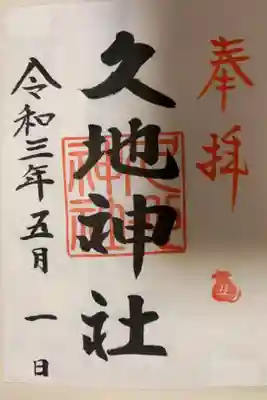 奉拝
久地神社
久地神社
令和三年五月一日